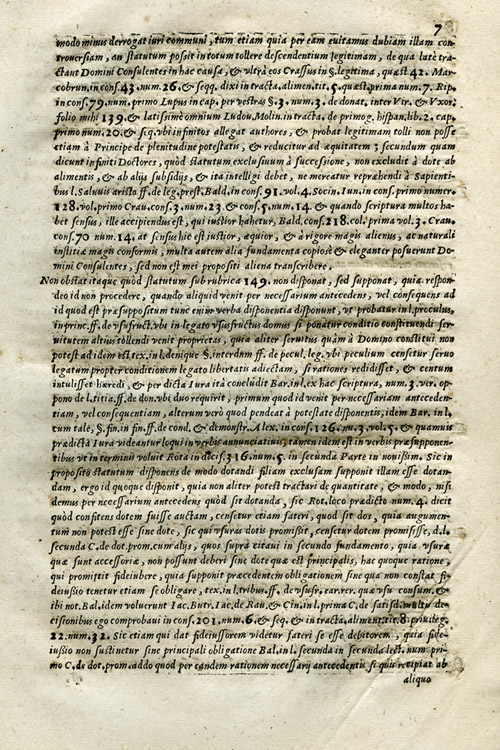 7
modo minus derrogat iuri communi, tum etiam quia per eam euitamus dubiam illam con-
trouersiam, an statutum possit in totum tollere descendentium legitimam, de qua latè tra-
ctant Domini Consulentes in hac causa, & vltrà eos Crassus in §. legitima, quæst. 42. Mar-
cobrun. in cons. 43. num. 26. & seqq. dixi in tracta. aliment. tit. 5. quæst. prima num. 7. Rip.
in cons. 79. num. primo Lupus in cap. per vestras §. 3. num. 3. de donat. inter Vir. & Vxor.
folio mihi 139. & latissimè omnium Ludou. Molin. in tracta. de primog. hispan. lib. 2. cap.
primo num. 20. & s.q. vbi infinitos allegat authores, & probat legitimam tolli non posse
etiam à Principe de plenitudine potestatis, & reducitur ad æquitatem; secundum quam
dicunt infiniti Doctores, quòd statutum exclusiuum à successione, non excludit à dote ab
alimentis, & ab alijs subsidijs, & ita intelligi debet, ne mereatur repræhendi à Sapienti-
bus l. Saluuis aristo ff. de leg. prest. Bald. in cons. 91. vol. 4. Socin. Iun. in cons. primo numer.
128. vol. primo Crau. cons. 3. num. 23. & cons. 5. num. 14. & quando scriptura multos ha-
bet sensus, ille accipiendus est, qui iustior habetur, Bald. cons. 218. col. prima vol. 3. Crau.
cons. 70 num. 14. at sensus hic est iustior, æquior, & à rigore magis alienus, at naturali
institiæ magis conformis, multa autem alia fundamenta copiosè & eleganter posuerunt Do-
mini Consulentes, sed non est mei propositi aliena transcribere.
Non obstat itaque quòd statutum sub rubrica 149. non disponat, sed supponat, quia respon-
deo id non procedere, quando aliquid venit per necessarium antecedens, vel consequens ad
id quod est præsuppositum tunc enim verba disponentia disponunt, vt probatur in l. proculus,
in princ. ff. de vsufruct. vbi in legato vsusfructus domus si ponatur conditio constituendi ser-
uitutem altius tollendi venit proprietas, quia aliter seruitus quàm à Domino constitui non
potest ad idem est tex. in l. denique §. interdum ff. de pecul. leg. vbi peculium censetur seruo
legatum propter conditionem legato libertatis adiectam, si rationes redidisset, & centum
intulisset hæredi, & per dicta Iura ità concludit Bar. in l. ex hac scriptura, num. 3. ver. op-
pono de l. titia. ff. de don. vbi duo requirit, primum quod id venit per necessariam anteceden-
tiam, vel consequentiam, alterum verò quod pendeat à potestate disponentis, idem Bar. in l.
cum tale, §. fin. in fin. ff. de cond. & demonstr. Alex. in cons. 126. num. 3. vol. 5. & quamuis
prædicta Iura videantur loqui in verbis annunciatiuis, tamen idem est in verbis præsupponen-
tibus vt in terminis voluit Rota in decis. 316. num. 5. in secunda Parte in nouissim. Sic in
proposito statutum disponens de modo dotandi filiam exclusam supponit illam esse dotan-
dam, ergo id quoque disponit, quia non aliter potest tractari de quantitate, & modo, nisi
demus per necessarium antecedens quòd sit dotanda, sic Rot. loco prædicto num. 4. dicit
quòd confitens dotem fuisse auctam, censetur etiam fateri, quod sit dos, quia augumen-
tum non potest esse sine dote, sic qui vsuras dotis promisit, censetur dotem promisisse, d. l.
secunda C. de dot. prom. cum alijs, quos supra citaui in secundo fundamento, quia vsuræ
quæ sunt accessoriæ, non possunt deberi sine dote quæ est principalis, hac quoque ratione,
qui promittit fideiubere, quia supponit præcedentem obligationem sine qua non constat fi-
deiussio tenetur etiam se obligare, tex. in l. tribus. ff. de vsufr. ear. rer. quæ vsu consum. &
ibi not. Bal. idem voluerunt Iac. Butr. Iac. de Rau. & Cin. in l. prima C. de satisd. multis de-
cisionibus ego comprobaui in cons. 201. num. 6. & seq. & in tracta. aliment. tit. 8. priuileg.
22. num. 32. Sic etiam qui dat fideiussorem videtur fateri se esse debitorem, quia fide-
iussio non sustinetur sine principali obligatione Bal. in l. secunda in secunda lect. num. pri-
mo C. de dot. prom. addo quod per eandem rationem necessarij antecedentis si quis recipiat ab
aliquo